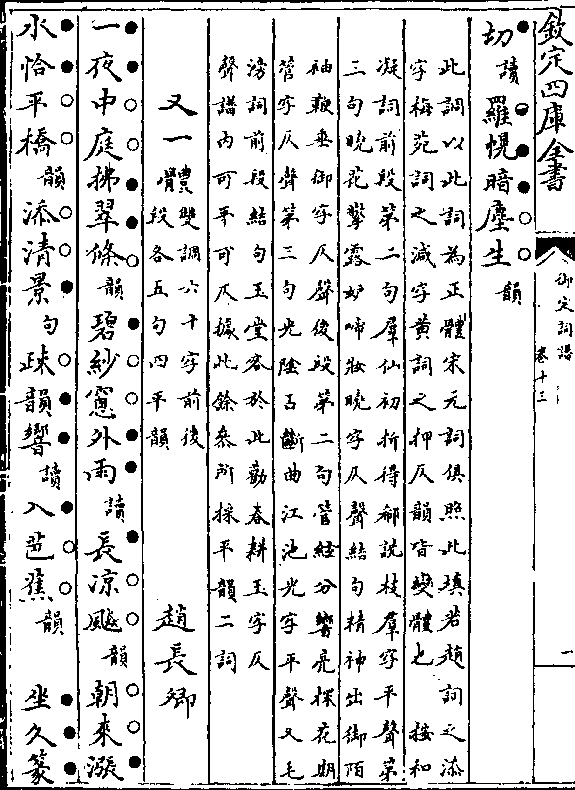 欽定四庫全書
御定詞譜
卷十三
一
切讀羅幌暗塵生韻
此調以此詞為正體宋元詞俱照此填若趙詞之添
字梅苑詞之減字黃詞之押仄韻皆變體也 按和
凝詞前段第二句羣仙初折得郤詵枝羣字平聲第
三句曉花擎露妒啼妝曉字仄聲結句精神出御陌
袖鞭垂御字仄聲後段第二句管絃分響亮探花期
管字仄聲第三句光陰占斷曲江池光字平聲又毛
滂詞前段結句玉堂客於此勸春耕玉字仄
聲譜內可平可仄據此餘參所採平韻二詞
又一體雙調六十字前後段各五句四平韻 趙長卿
一夜中庭拂翠條韻碧紗窓外雨讀長涼飈韻朝來漲
水恰平橋韻添清景句疎韻響讀入芭蕉韻 坐久篆